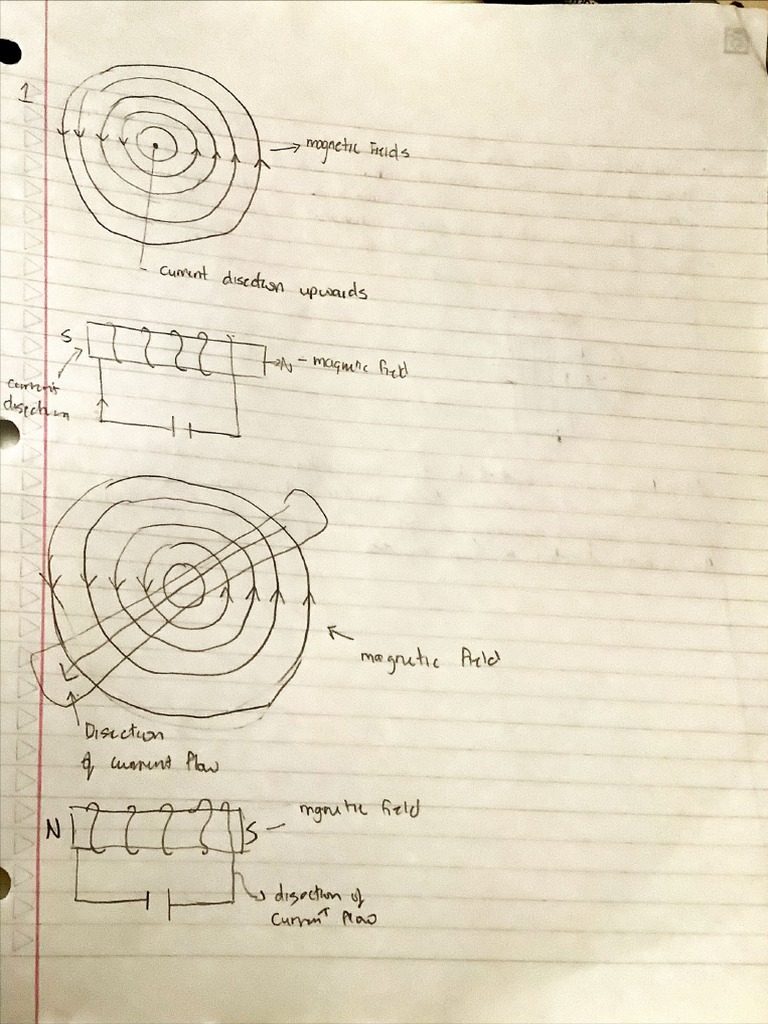 1
magnetic fields
current direction upwards
S
N - magnetic field
current
direction
magnetic field
Direction
of current flow
N
S
mgnetic field
direction of
Current flow